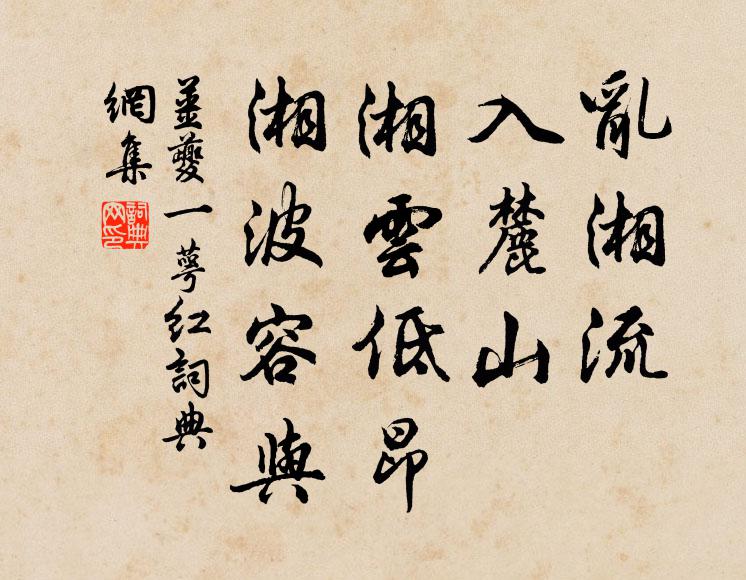 亂湘流
入麓山
湘雲低昂
湘波容與
姜夔一萼紅詞典
網集
詞典
网印